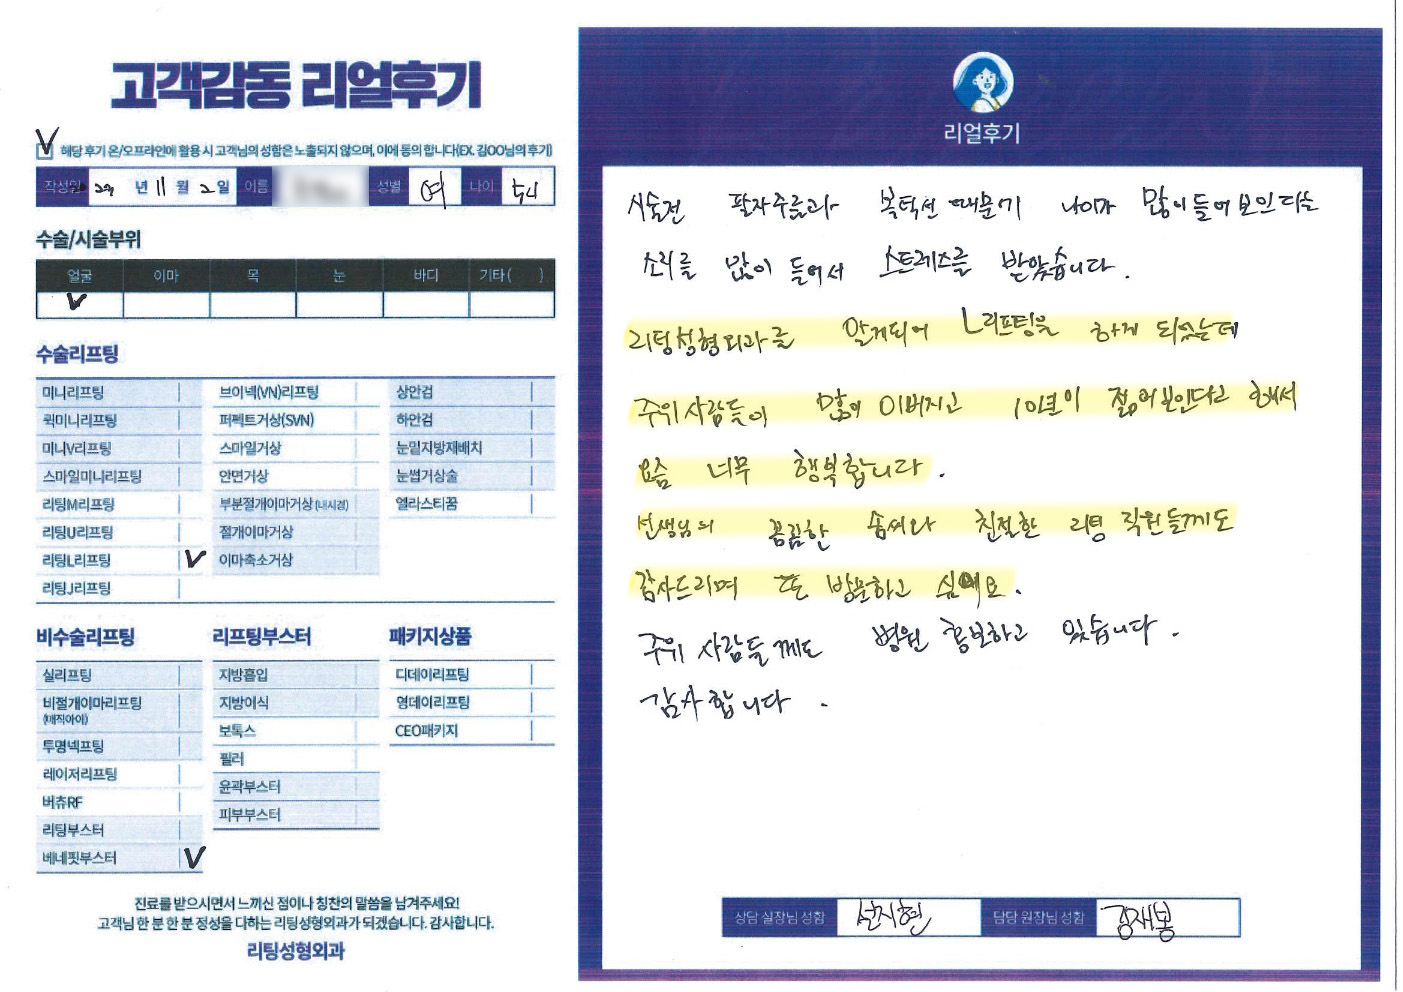 고객감동 리얼후기
V 해당 후기 온/오프라인에 활용 시 고객님의 성함은 노출되지 않으며, 이에 동의 합니다(EX. 김OO님의 후기)
작성일 년 11 월 2 일 이름 성별 여 나이 54
수술/시술부위
얼굴 이마 목 눈 바디 기타 ( )
V
수술리프팅
미니리프팅 브이넥(VN)리프팅 상안검
퀵미니리프팅 퍼펙트거상(SVN) 하안검
미니V리프팅 스마일거상 눈밑지방재배치
스마일미니리프팅 안면거상 눈썹거상술
리팅M리프팅 부분절개이마거상 (내시경) 엘라스티꿈
리팅U리프팅 절개이마거상
리팅L리프팅 V 이마축소거상
리팅J리프팅
비수술리프팅 리프팅부스터 패키지상품
실리프팅 지방흡입 디데이리프팅
비절개이마리프팅 지방이식 영데이리프팅
(매직아이)
투명넥프팅 보톡스 CEO패키지
레이저리프팅 필러
버츄RF 윤곽부스터
리팅부스터 피부부스터
베네핏부스터 V
진료를 받으시면서 느끼신 점이나 칭찬의 말씀을 남겨주세요!
고객님 한 분 한 분 정성을 다하는 리팅성형외과가 되겠습니다. 감사합니다.
리팅성형외과
리얼후기
시술전 팔자주름과 복턱선 때문에 나이가 많이들어 보인다는
소리를 많이 들어서 스트레스를 받았습니다.
리팅성형외과를 알게되어 L리프팅을 하게 되었는데
주위사람들이 많이 이뻐지고 10년이 젊어보인다고 해서
요즘 너무 행복합니다.
선생님의 꼼꼼한 솜씨와 친절한 리팅 직원들께도
감사드리며 또 방문하고 싶에요.
주위 사람들께도 병원 홍보하고 있습니다.
감사합니다.
상담 실장님 성함 선지현 담당 원장님 성함 강재봉